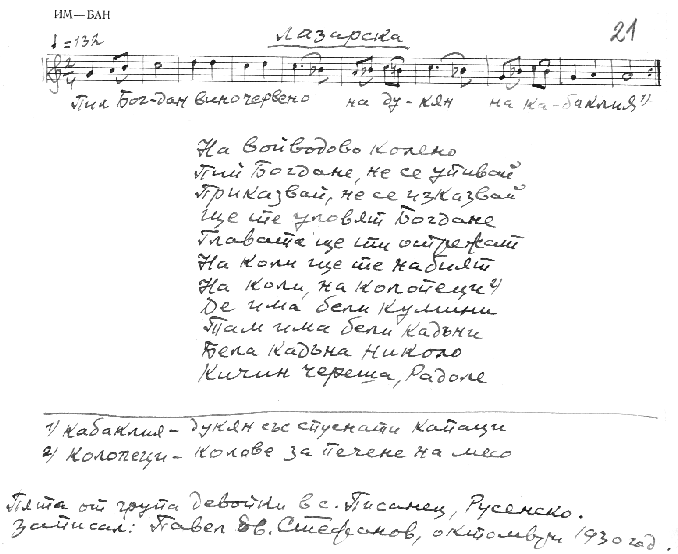 ИМ—БАН
♩=132
Лазарска
21
Пил Бог-дан вино червено на ду-кян на ка-баклия¹⁾
На войводово колено
Пий Богдане, не се упивай
Приказвай, не се изказвай
Ще те уловят Богдане
Главата ще ти отрежат
На коли ще те набият
На коли, на колопеци²⁾
Де има бели кумини
Там има бели кадъни
Бела кадъна Николо
Кичин череша, Радоле
1) Кабаклия – дукян със спуснати капаци
2) Колопеци – колове за печене на месо
Пята от група девойки в с. Писанец, Русенско.
Записал: Павел Ив. Стефанов, октомври 1930 год.